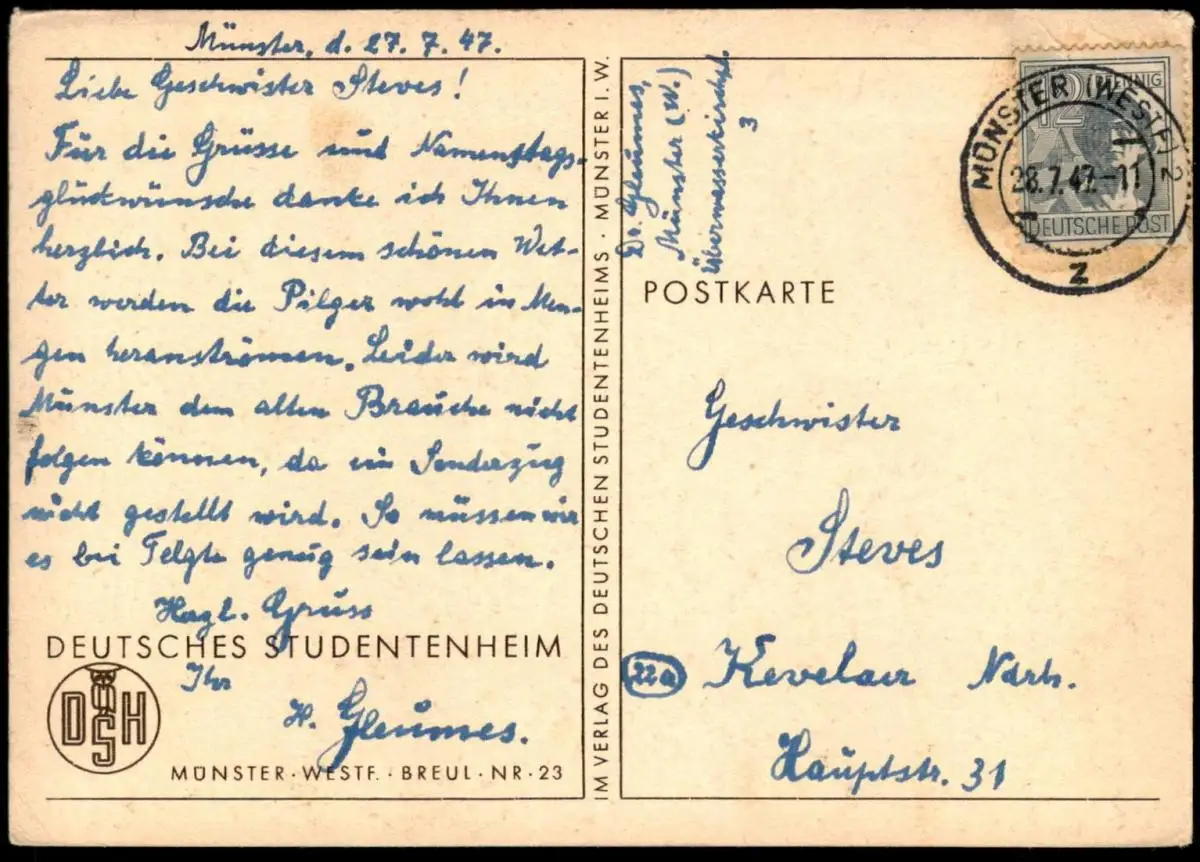 Münster, d. 27. 7. 47.
Liebe Geschwister Steves!
Für die Grüsse und Namenstags-
glückwünsche danke ich Ihnen
herzlich. Bei diesem schönen Wet-
ter werden die Pilger wohl in Men-
gen heranströmen. Leider wird
Münster dem alten Brauche nicht
folgen können, da ein Sonderzug
nicht gestellt wird. So müssen wir
es bei Telgte genug sein lassen.
Hzgl. Gruss
Ihr
H. Gleumes.
DEUTSCHES STUDENTENHEIM
DSH
MÜNSTER · WESTF. · BREUL · NR · 23
IM VERLAG DES DEUTSCHEN STUDENTENHEIMS · MÜNSTER I. W.
Dr. Gleumes,
Münster (W.)
Überwasserkirchpl.
3
12 PFENNIG
DEUTSCHE POST
MÜNSTER (WESTF) 2
28.7.47.-11
z
POSTKARTE
Geschwister
Steves
22a Kevelaer Ndrh.
Hauptstr. 31